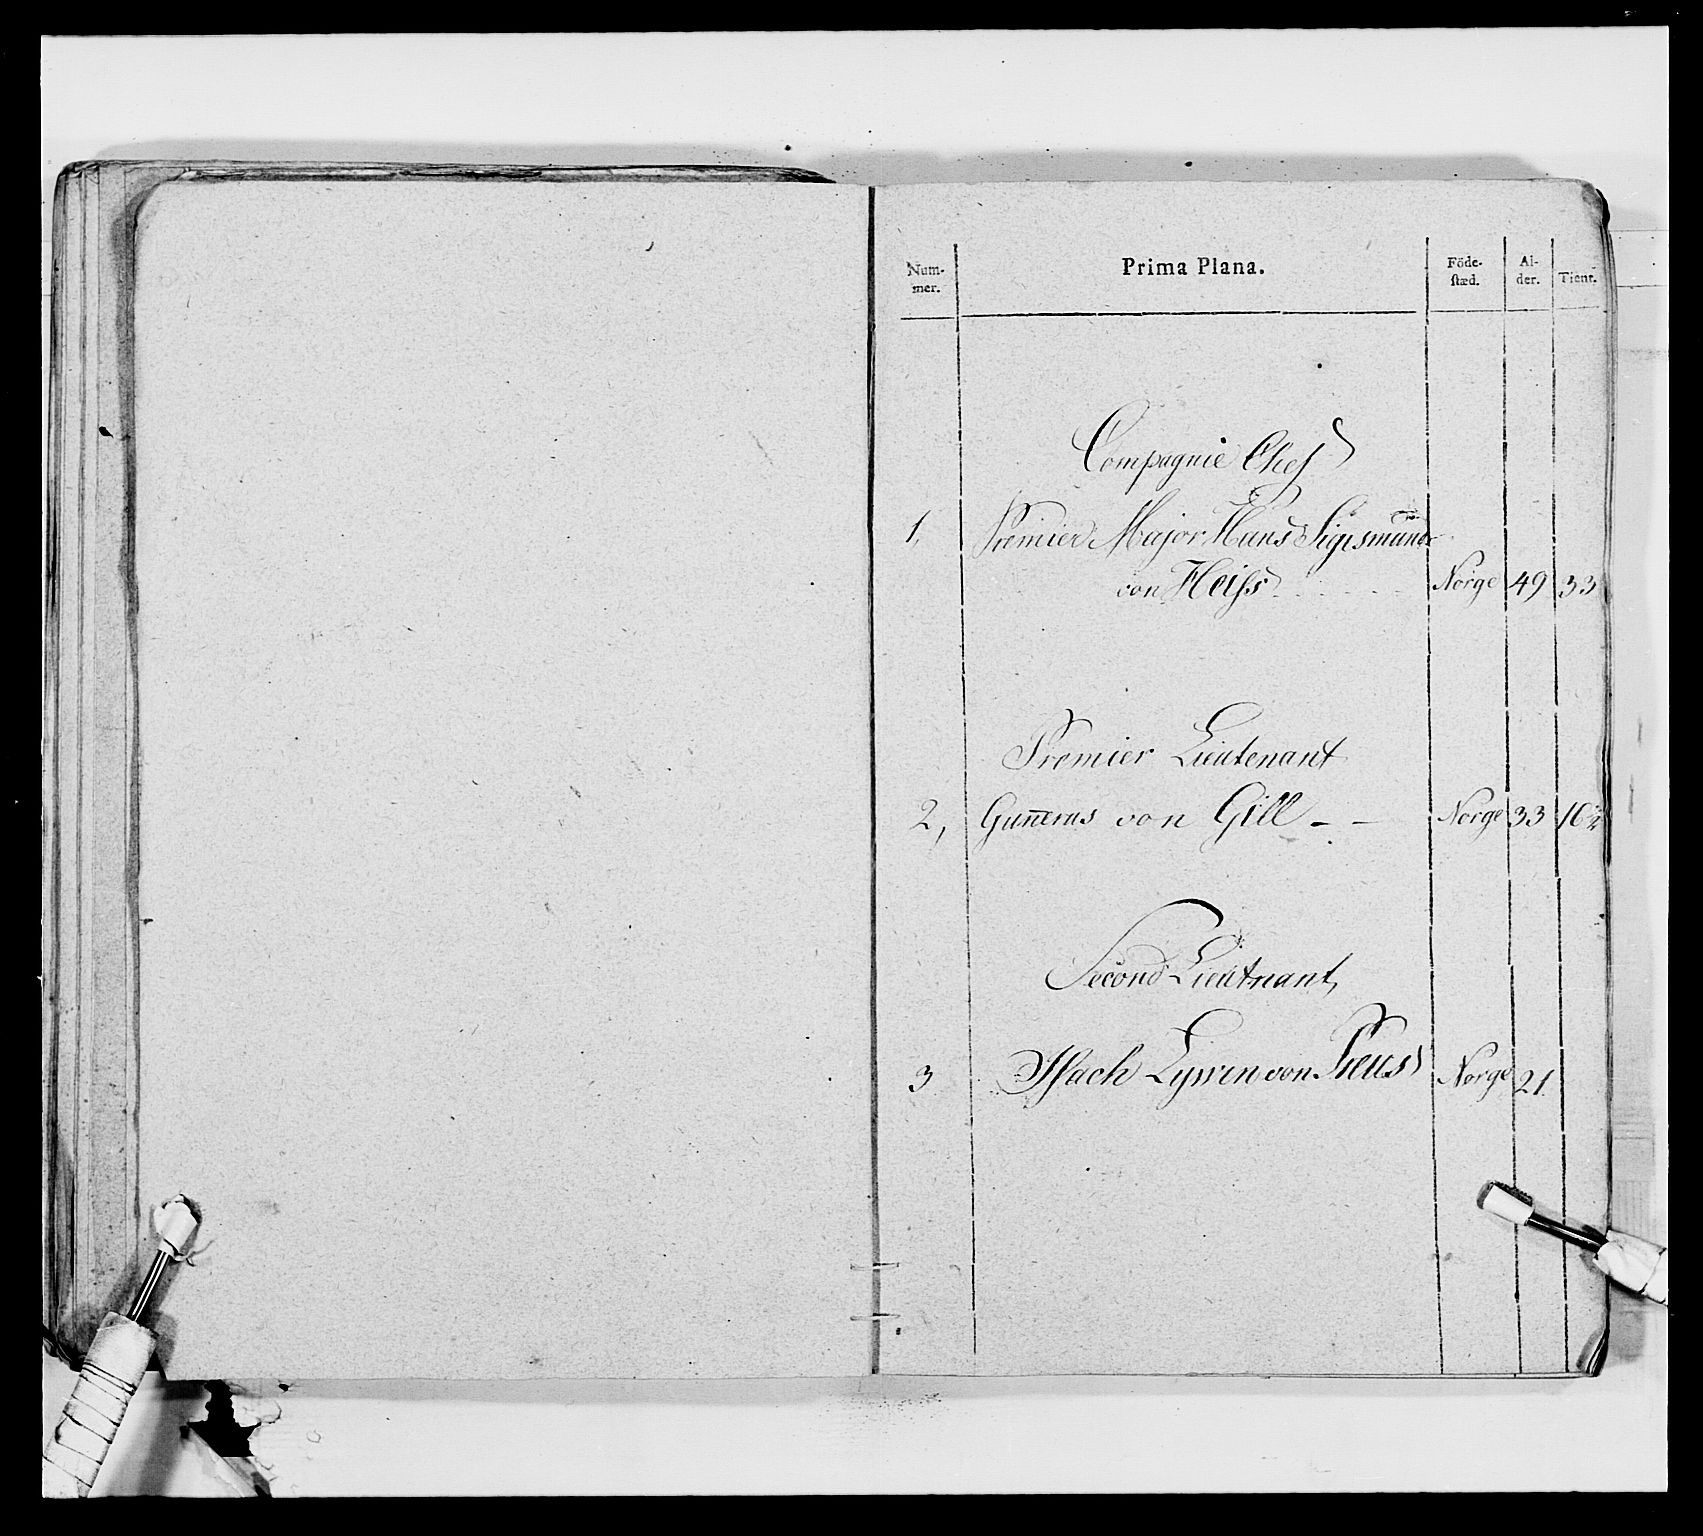 Num-
mer.
Prima Plana.
Föde-
stæd.
Al-
der.
Tient.
Compagnie Chef
1, Premier Major Hans Sigismund
von Heiss Norge 49 33
Premier Lieutenant
2, Gunerus von Gill - - Norge 33 16
Second Lieutnant,
3 Isach Lyssen von Norge 21